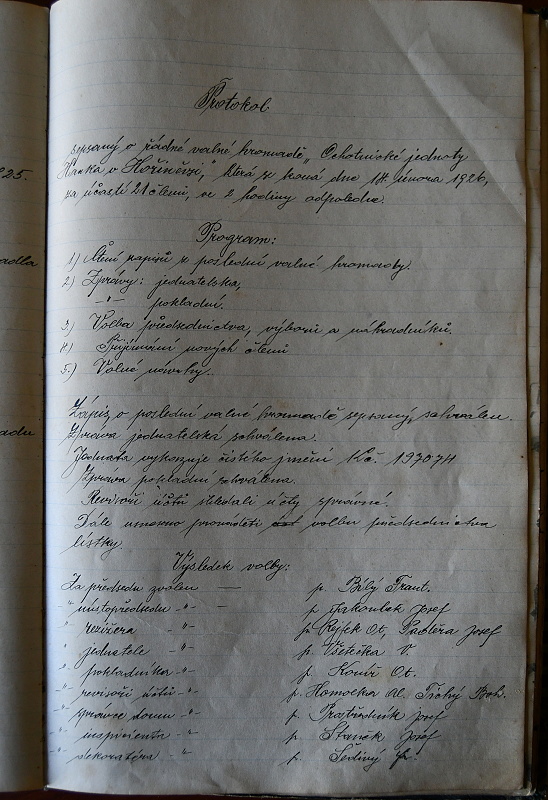 Protokol
sepsaný o řádné valné hromadě „Ochotnické jednoty
Hanka v Hořiněvsi," která se koná dne 14. února 1926,
za účasti 21 členů, ve 2 hodiny odpoledne.
Program:
1) Čtení zápisů z poslední valné hromady.
2) Zprávy: jednatelska,
-"- pokladní.
3) Volba předsednictva, výborů a náhradníků.
4) Přijímání nových členů
5) Volné návrhy.
Zápis, o poslední valné hromadě sepsaný, schválen.
Zpráva jednatelská schválena.
Jednota vykazuje čistého jmění Kč. 1970 74
Zpráva pokladní schválena.
Revisoři účtů shledali účty správné.
Dále usneseno provésti volbu předsednictva
lístky.
Výsledek volby:
Za předsedu zvolen — p. Bílý Frant.
" místopředsedu -"- — p. Jakoubek Josef
" režiséra -"- p. Ryšek Ot, Pactěra Josef
" jednatele -"- p. Všetečka V
" pokladníka -"- p. Koníř Ot.
" revisoři účtů -"- p. Homolka Al. Tichý Boh.
" správce domu -"- p. Prostředník Josef
" inspicienta -"- p. Staněk Josef
" dekoratéra -"- p. Šedivý Fr.
225.
adla
adu